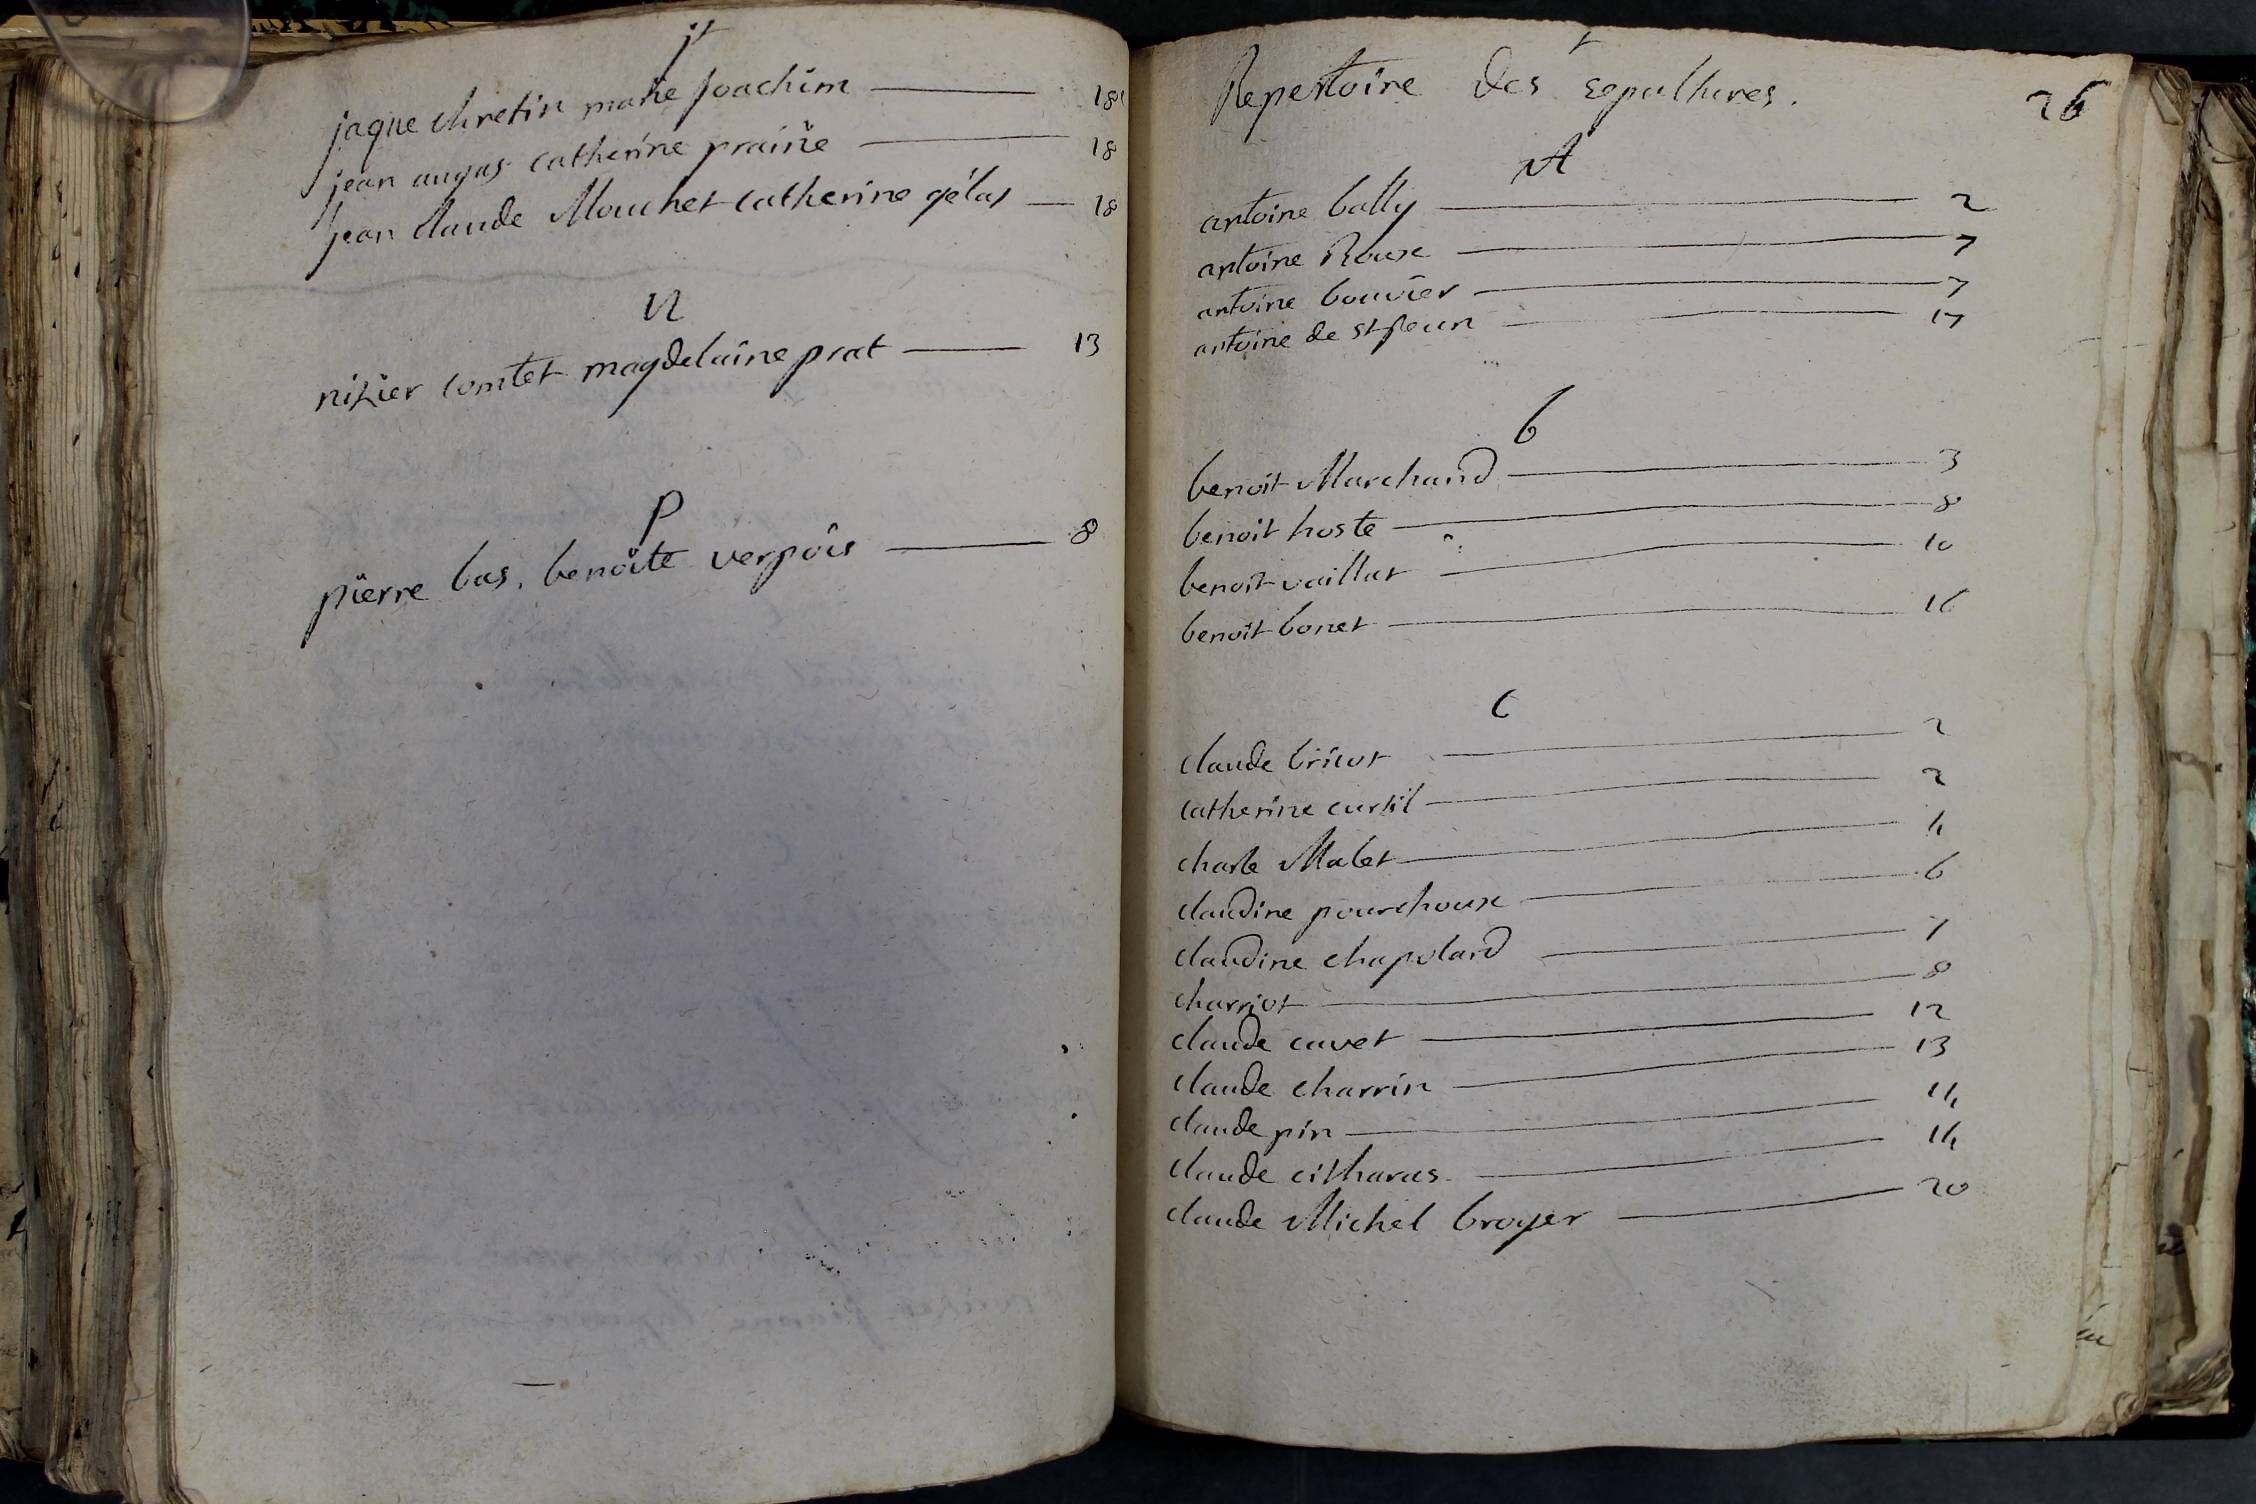 j
jaque chretin marie joachim — 18
jean augas catherine prainë — 18
jean claude Mouchet catherine gélas — 18
N
nizier comtet magdelaine prat — 13
P
pïerre bas, benoite verpois — 8
Repertoire des sepultures. 26
A
antoine bally — 2
antoine Roux — 7
antoine bouvier — 7
antoine de st jean — 17
b
benoit Marchand — 3
benoit hoste — 8
benoit vaillat — 10
benoit bonet — 16
C
claude bricot — 2
catherine curtil — 2
charle Malet — 4
claudine pourchoux — 6
claudine chapolard — 7
charriot — 8
claude cavet — 12
claude charrin — 13
claude pin — 14
claude citharas. — 14
claude Michel broyer — 20